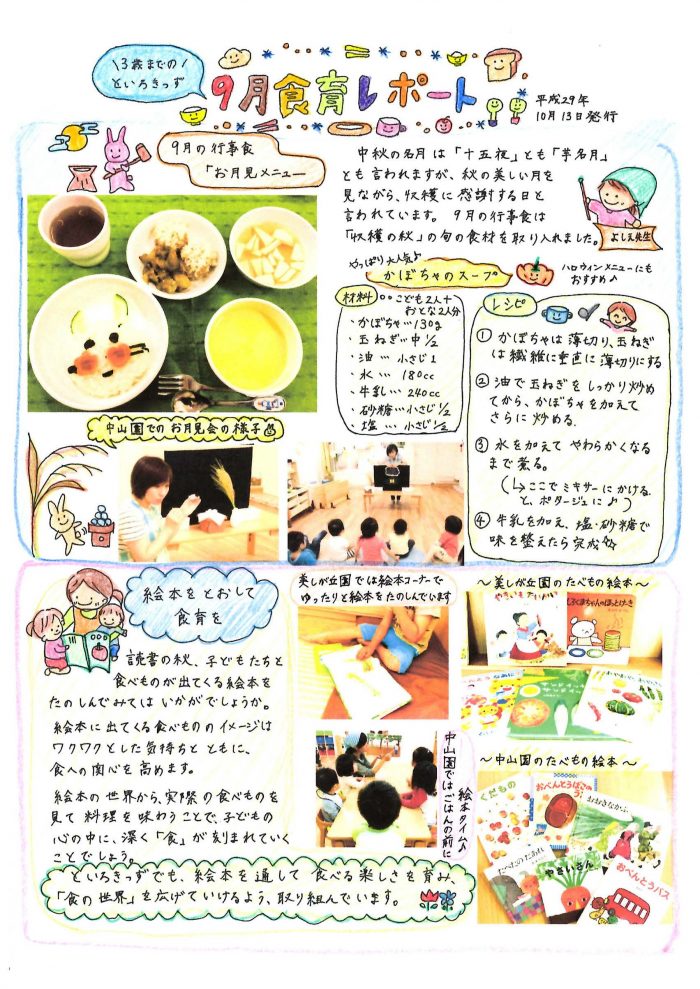 3歳までの
といろきっず
9月食育レポート
平成29年
10月13日発行
9月の行事食
「お月見メニュー
中秋の名月は「十五夜」とも「芋名月」
とも言われますが、秋の美しい月を
見ながら、収穫に感謝する日と
言われています。 9月の行事食は
「収穫の秋」の旬の食材を取り入れました。
よしえ先生
やっぱり大人気♪
かぼちゃのスープ
ハロウィンメニューにも
おすすめ♪
材料 こども2人+
おとな2人分
・かぼちゃ…130g
・玉ねぎ…中1/2
・油…小さじ1
・水…180cc
・牛乳…240cc
・砂糖…小さじ1/2
・塩…小さじ1/2
レシピ
① かぼちゃは薄切り、玉ねぎ
は繊維に垂直に薄切りにする
② 油で玉ねぎをしっかり炒め
てから、かぼちゃを加えて
さらに炒める.
③ 水を加えて やわらかくなる
まで煮る。
(↳ここでミキサーにかける
と、ポタージュに♪)
④ 牛乳を加え、塩・砂糖で
味を整えたら完成☆
中山園でのお月見会の様子
絵本をとおして
食育を
読書の秋、子どもたちと
食べものが出てくる絵本を
たのしんでみてはいかがでしょうか。
絵本に出てくる食べもののイメージは
ワクワクとした気持ちとともに、
食への関心を高めます。
絵本の世界から、実際の食べものを
見て料理を味わうことで、子どもの
心の中に、深く「食」が刻まれていく
ことでしょう。
といろきっずでも、絵本を通して食べる楽しさを育み、
「食の世界」を広げていけるよう、取り組んでいます。
美しが丘園では絵本コーナーで
ゆったりと絵本をたのしんでいます
中山園ではごはんの前に
絵本タイム♪
～美しが丘園のたべもの絵本～
やきいもたいかい
しろくまちゃんのほっとけーき
サンドイッチサンドイッチ
～中山園のたべもの絵本～
くだもの
おべんとうばこのうた
おおきなかぶ
やさいさん
おべんとうバス